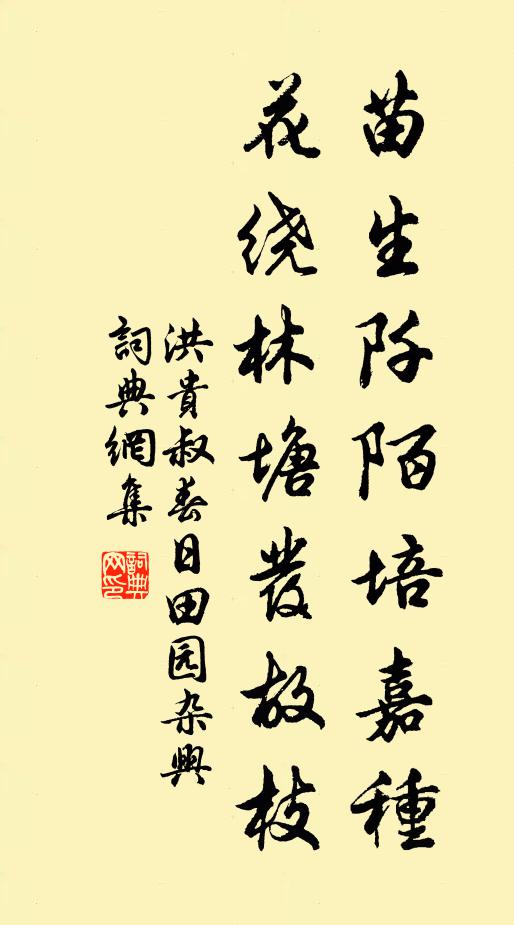 苗生阡陌培嘉種
花绕林塘發故枝
洪貴叔春日田园杂興
詞典網集
詞典网印